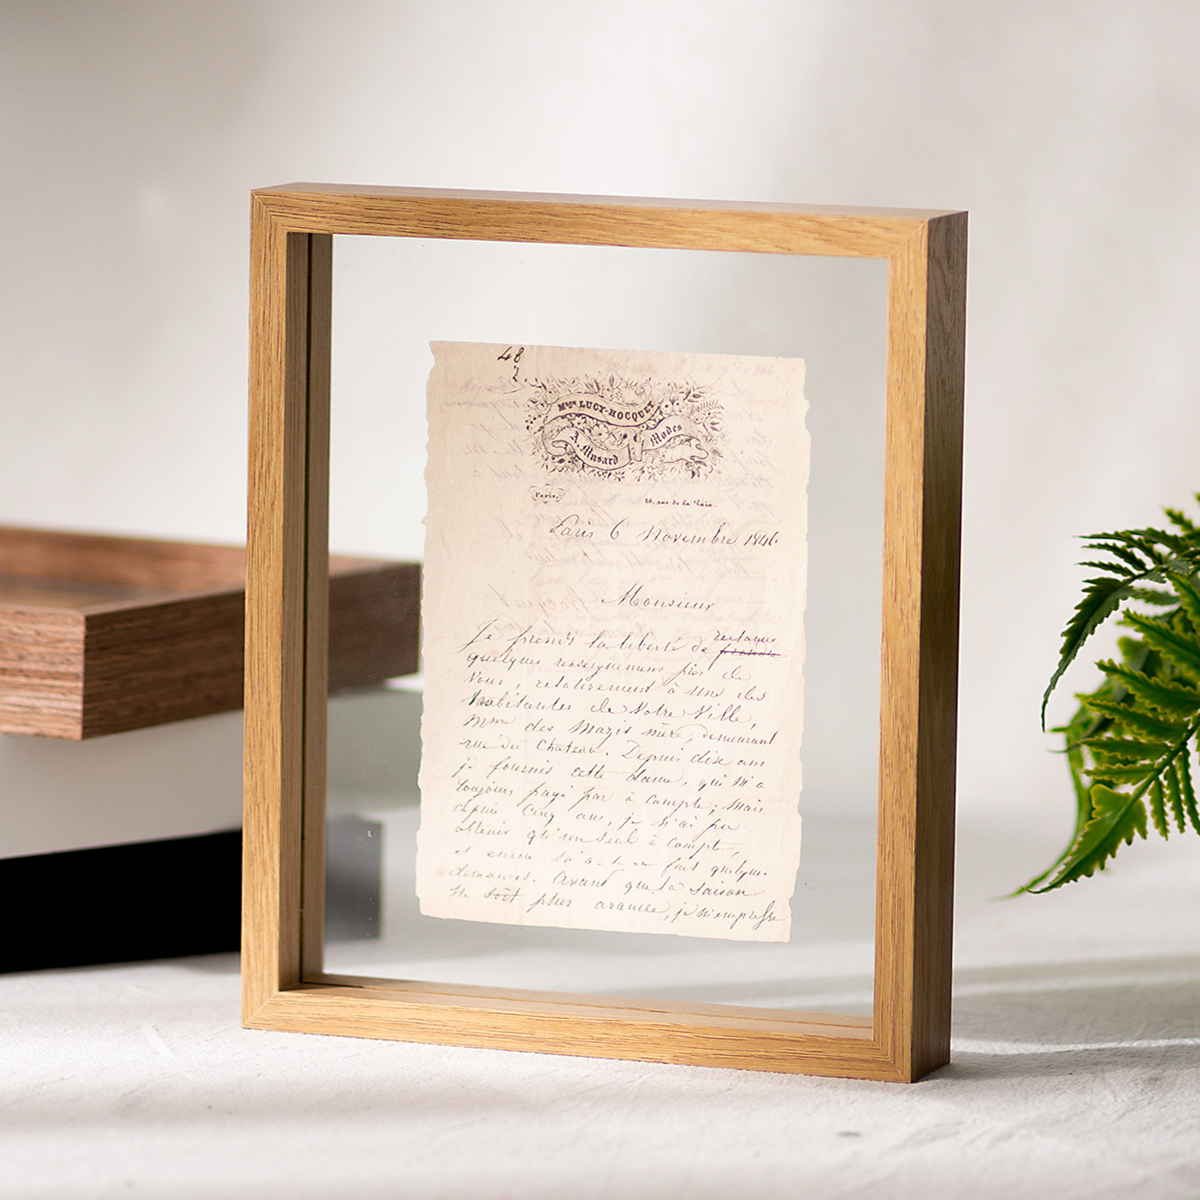 48
2
Mme LUCY-HOCQUET
A. Musard Modes
Paris.
26, rue de la Paix.
Paris 6 Novembre 1846
Monsieur
Je prends la liberté de reclamer
quelques renseignemens près de
Vous, relativement à une des
habitantes de Votre Ville,
Mme des Mazis née, demeurant
rue du Chateau. Depuis dixe ans
je fournis cette dame, qui m'a
toujours payé par à compte; mais
depuis cinq ans, je n'ai pu
obtenir qu'un seul à compte,
et encore m'a-t-on fait quelques
demarches. Avant que la saison
ne soit plus avancée, je m'empresse